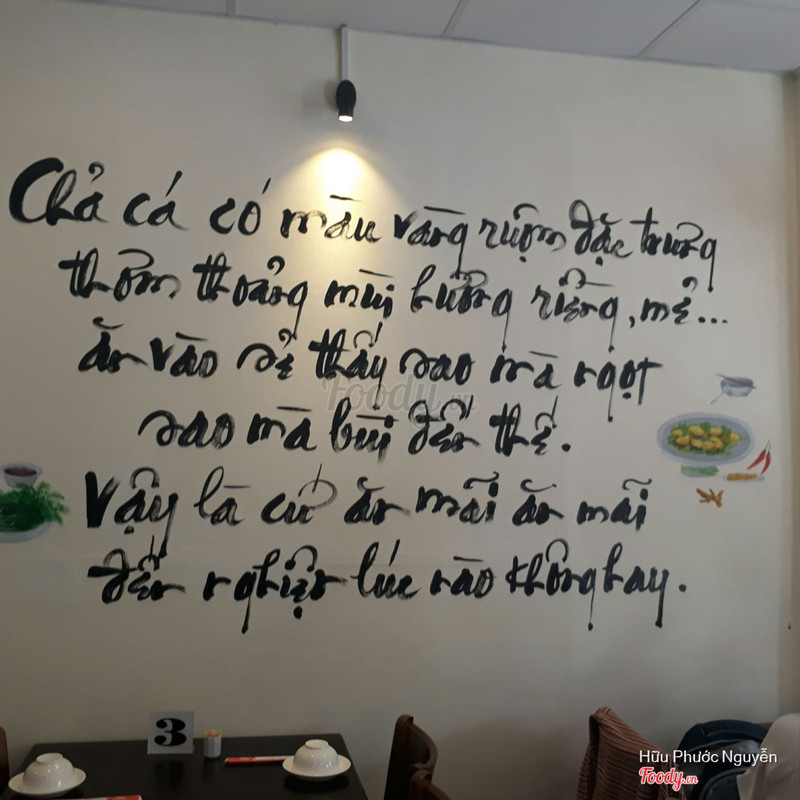 Chả cá có màu vàng rượm đặc trưng
thơm thoảng mùi hương riềng, mẻ...
ăn vào sẽ thấy sao mà ngọt
sao mà bùi đến thế.
Vậy là cứ ăn mãi ăn mãi
đến nghiện lúc nào không hay.
Foody.vn
3
Hữu Phước Nguyễn
Foody.vn